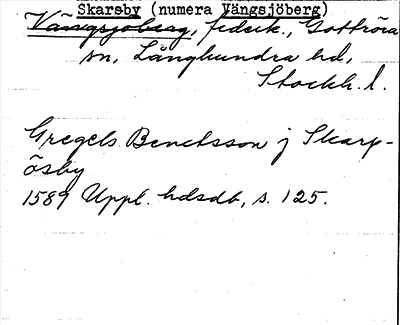 Skarsby (numera Vängsjöberg)
Vängsjöberg, fideik., Gottröra
sn, Långhundra hd,
Stockh. l.
Gregels Benctsson j Skarp-
ösby
1589 Uppl. hdsdb, s. 125.